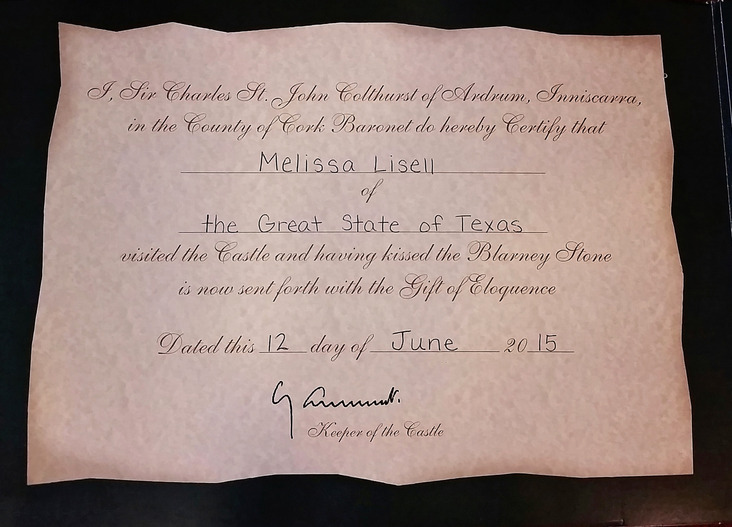 I, Sir Charles St. John Colthurst of Ardrum, Inniscarra,
in the County of Cork Baronet do hereby Certify that
Melissa Lisell
of
the Great State of Texas
visited the Castle and having kissed the Blarney Stone
is now sent forth with the Gift of Eloquence
Dated this 12 day of June 2015
Keeper of the Castle